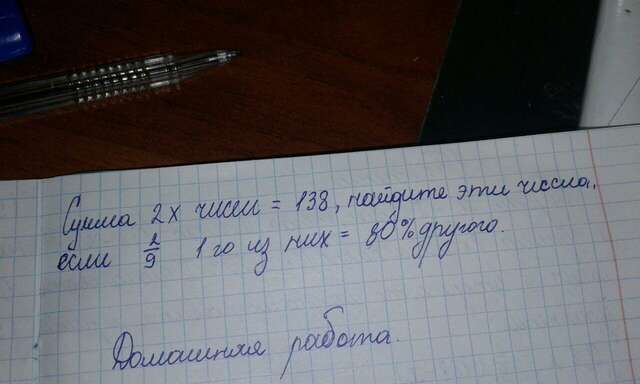 Сумма 2х чисел = 138, найдите эти числа,
если 2/9 1го из них = 80% другого.
Домашняя работа.